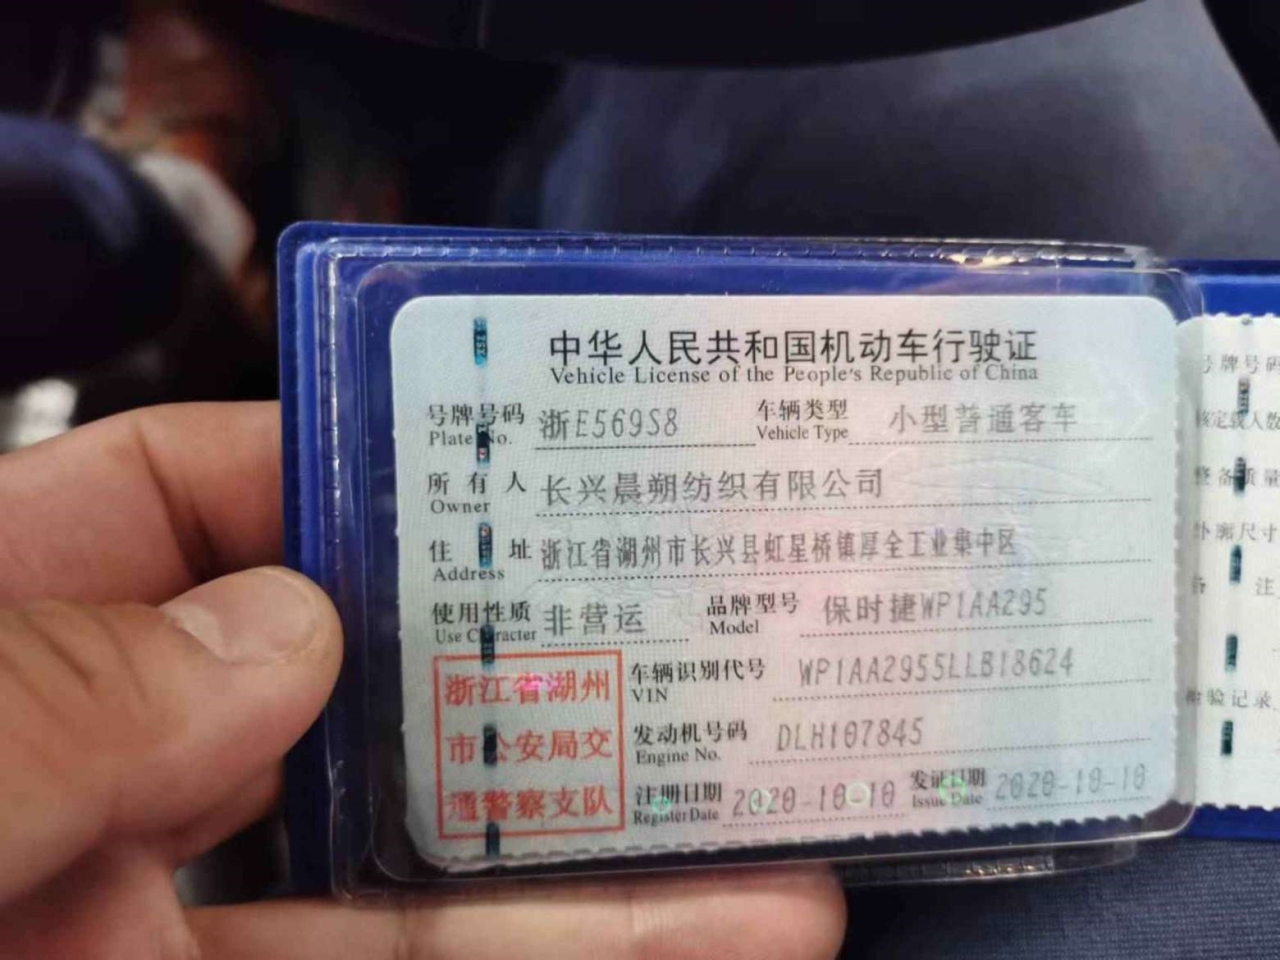 中华人民共和国机动车行驶证
Vehicle License of the People's Republic of China
号牌号码 浙E569S8 车辆类型 小型普通客车
Plate No. Vehicle Type
所有人 长兴晨朔纺织有限公司
Owner
住址 浙江省湖州市长兴县虹星桥镇厚全工业集中区
Address
使用性质 非营运 品牌型号 保时捷WP1AA295
Use Character Model
浙江省湖州
市公安局交
通警察支队
车辆识别代号 WP1AA2955LLB18624
VIN
发动机号码 DLH107845
Engine No.
注册日期 2020-10-10 发证日期 2020-10-10
Register Date Issue Date
号牌号码
核定载人数
整备质量
外廓尺寸
备注
检验记录